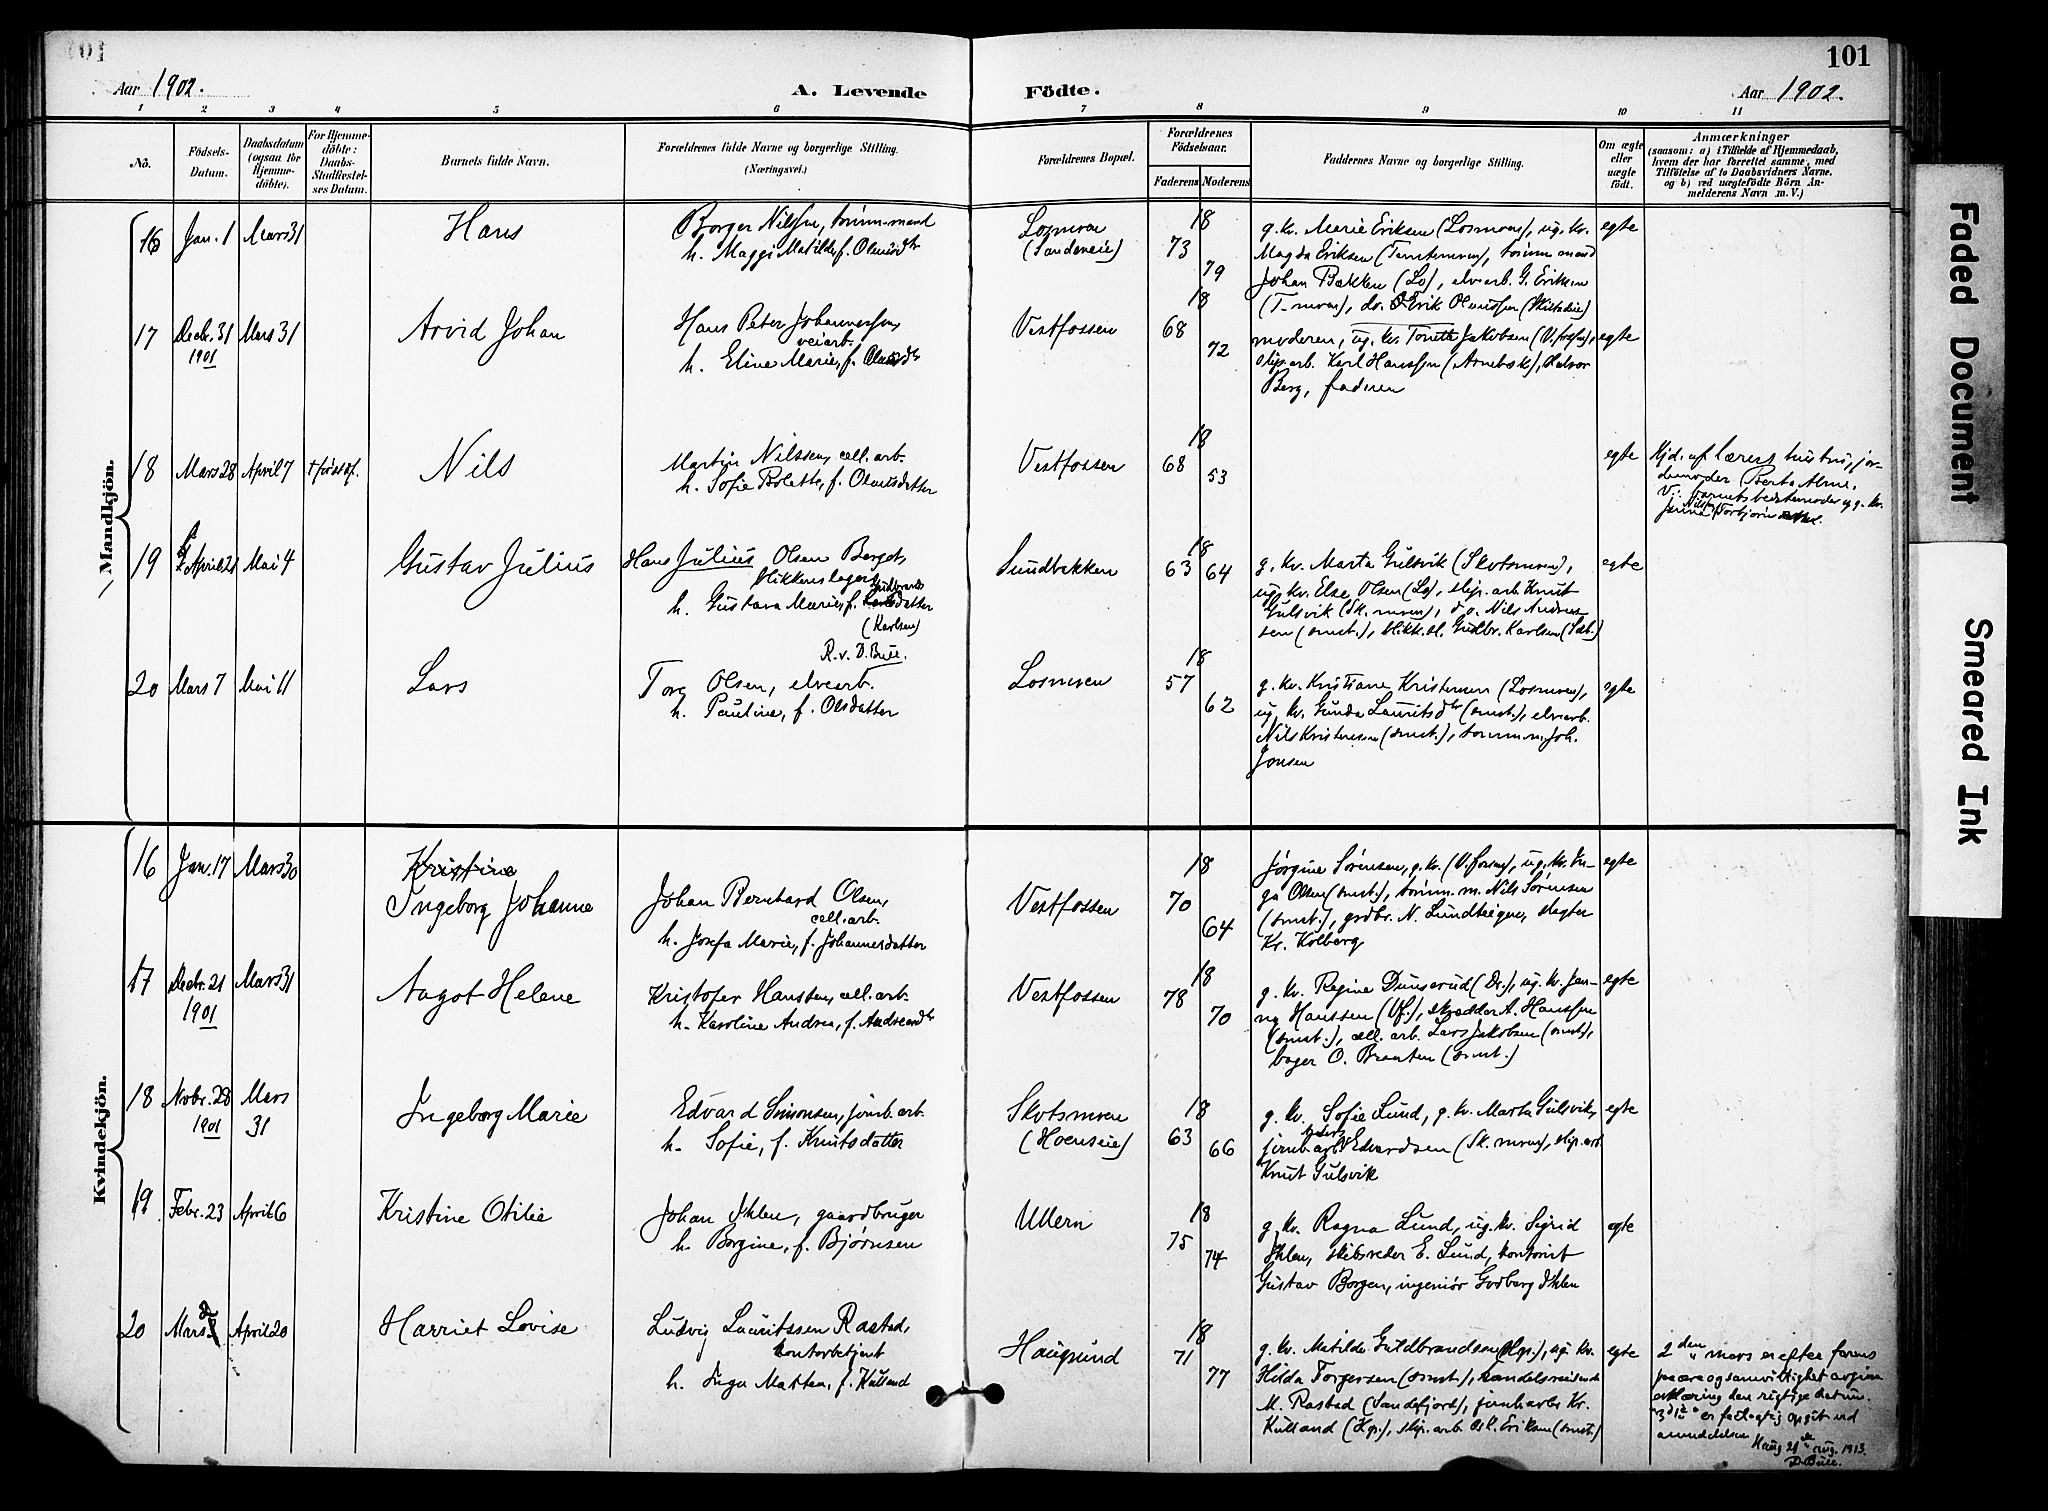 101
101
Aar 1902.
A. Levende
Födte.
Aar 1902.
1 2 3 4 5 6 7 8 9 10 11
No.
Födsels-
Datum.
Daabsdatum
(ogsaa for
Hjemme-
döbte).
For Hjemme-
döbte:
Daabs-
Stadfæstel-
ses Datum.
Barnets fulde Navn.
Forældrenes fulde Navne og borgerlige Stilling.
(Næringsvei.)
Forældrenes Bopæl.
Forældrenes
Födselsaar.
Faderens
Moderens
Faddernes Navne og borgerlige Stilling.
Om ægte
eller
uægte
födt.
Anmærkninger
(saasom: a) i Tilfælde af Hjemmedaab,
hvem der har forrettet samme, med
Tilföielse af to Daabsvidners Navne,
og b) ved uægtefödte Börn An-
melderens Navn m. V.)
Mandkjön.
16 Jan. 1 Mars 31
Hans
Borger Nilssen, tömm.mand
h. Maggi Matilde, f. Olausdtr
Losmoen
(Sandeneie)
18
73
79
g. kv. Marie Eriksen (Losmoen), ug. kv.
Magda Eriksen (Temtemoen), tömm.mand
Johan Bakken (Lo), elvearb. G. Eriksen
(T-moen), do. Erik Olaussen
egte
17 Decbr. 31
1901
Mars 31
Arvid Johan
Hans Peter Johannessen,
veiarb.
h. Eline Marie, f. Olausdtr
Vestfossen
18
68
72
moderen, ug. kv. Tonette Jakobsen (V.fossen),
slip.arb. Karl Hanssen (Arnebæk), Halvor
Berg, faderen
egte
18 Mars 28 April 7 † før st.f.
Nils
Martin Nilssen, cell. arb.
h. Sofie Bolette, f. Olausdatter
Vestfossen
18
68
53
egte
Hjd. af lærers hustru, jor-
demoder Berta Alme.
V.: barnets bedstemoder og g. kv.
Nilsen
Torbjörn
19 April 21 Mai 4
Gustav Julius
Hans Julius Olsen Berget,
blikkenslager
Gudbrands
h. Gustava Marie, f. Karlsdatter
(Karlsen)
R. v. D. Bull.
Sundbakken
18
63 64
g. kv. Marta Gulsvik (Skotsmoen),
ug. kv. Else Olsen (Lo), slip. arb. Knut
Gulsvik (Sk. moen), d.o. Nils Andres-
sen (smst.), blikk.sl. Gudbr. Karlsen (Sdb.)
egte
20 Mars 7 Mai 11
Lars
Torg Olsen, elvearb.
h. Pauline, f. Olsdatter
Losmoen
18
57
62
g. kv. Kristiane Kristensen (Losmoen),
ug. kv. Gunda Lauritsdtr (smst.), elvearb.
Nils Kristensen (smst.), tömm.m. Joh.
Jonsen
egte
Kvindekjön.
16 Jan. 17 Mars 30
Kristine
Ingeborg Johanne
Johan Bernhard Olsen,
cell. arb.
h. Josefa Marie, f. Johannesdatter
Vestfossen
18
70
64
Jørgine Sørensen, g. kv. (V.fossen), ug. kv. In-
ga Olsen (smst.), tömm. m. Nils Sörensen
(smst.), grdbr. N. Lundteigen, slagter
Kr. Kolberg
egte
17 Decbr. 21
1901
Mars 31
Aagot Helene
Kristofer Hanssen, cell. arb.
h. Karoline Andrea, f. Andreasdtr
Vestfossen
18
78
70
g. kv. Regine Dunserud (Dr.), ug. k. Jen-
ny Hanssen (Vf.), skrædder A. Hanssen
(smst.), cell. arb. Lars Jakobsen (smst),
bager O. Braaten (smst.)
egte
18 Novbr. 28
1901
Mars
31
Ingeborg Marie
Edvard Simonsen, jernb. arb.
h. Sofie, f. Knutsdatter
Skotsmoen
(Hoenseie)
18
63
66
g. kv. Sofie Lund, g. kv. Marta Gulsvik,
jernb.arb. Edvardsen (Sk. moen), slip. arb.
Knut Gulsvik
egte
19 Febr. 23 April 6
Kristine Otilie
Johan Ihlen, gaardbruger
h. Borgine, f. Bjørnsen
Ullern
18
75
74
g. kv. Ragna Lund, ug. kv. Sigrid
Ihlen, skibsreder E. Lund, kontorist
Gustav Borgen, ingeniör Godberg Ihlen
egte
20 Mars 2 April 20
Harriet Lovise
Ludvig Lauritssen Rastad,
kontorbetjent
h. Inga Martea, f. Kulland
Haugsund
18
71
77
g. kv. Matilde Guldbrandsen (Hgs.), ug. kv.
Hilda Torgersen (smst.), handelsreisende
M. Rastad (Sandefjord), jernb.arb. Kr.
Kulland (Hgs.), slip. arb. Osk. Eriksen (smst.)
egte
2den mars er efter farens
paa ære og samvittighet avgivne
erklæring den rigtige datum.
"3die" er feilagtig opgit ved
anmeldelsen
Haug 21de aug. 1913.
D. Bull.
Faded Document
Smeared Ink